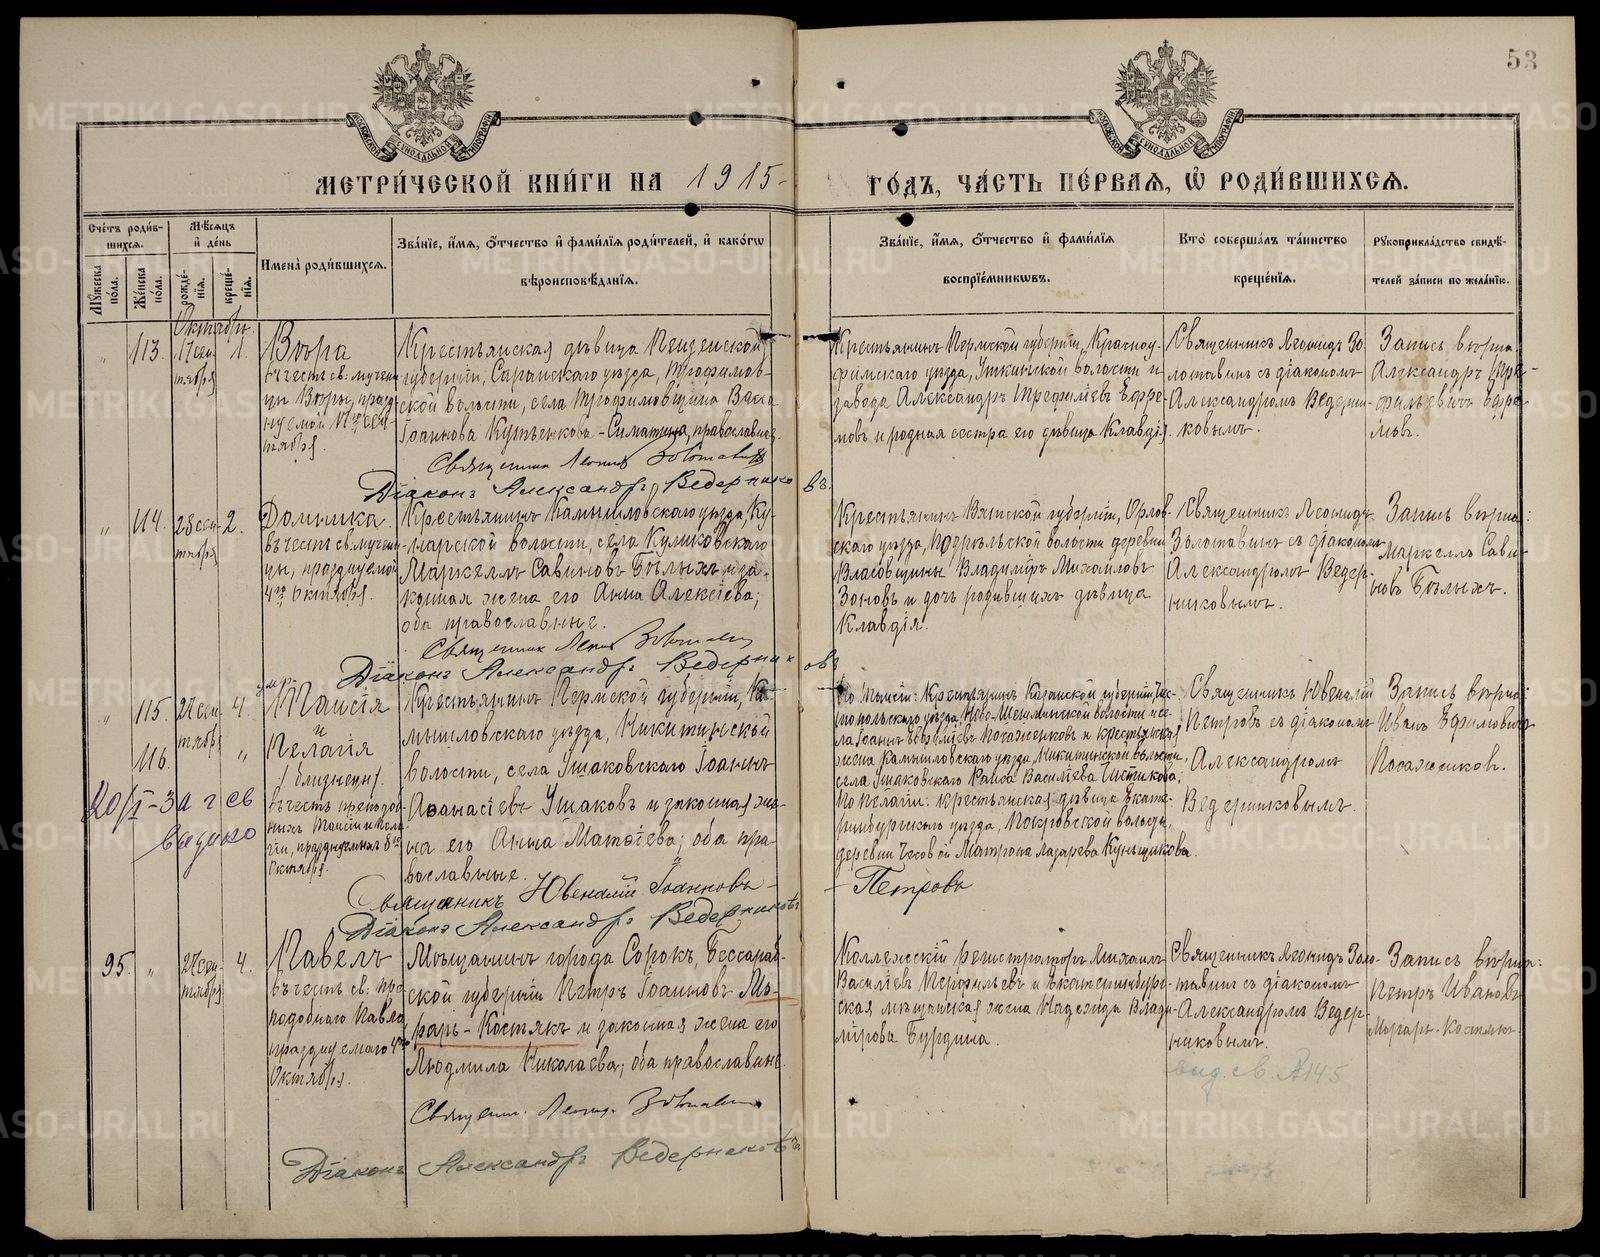 53
МЕТРИ́ЧЕСКОЙ КНИ́ГИ НА 1915
ГО́ДЪ, ЧА́СТЬ ПЕ́РВАЯ, Ѡ РОДИ́ВШИХСЯ.
Сче́тъ роди́в-
шихся.
Мѣ́сяцъ
и де́нь
Имена̀ роди́вшихся.
Зва́нїе, и́мя, о́тчество и фами́лїя роди́телей, и како́гѡ
вѣроисповѣ́данїя.
Зва́нїе, и́мя, о́тчество и фами́лїя
воспрїе́мникѡвъ.
Кто̀ соверша́лъ та́инство
креще́нїя.
Рꙋкоприкла́дство свидѣ́-
телей за́писи по жела́нїю.
Мꙋ́жеска
по́ла.
Же́нска
по́ла.
рожде́-
нїя.
креще́-
нїя.
Октябрь.
113.
17 сен-
тября
1.
Вѣра
въ честь св. мучени-
цы Вѣры, празд-
нуемой 17го сен-
тября.
Крестьянская дѣвица Пензенской
губернiи, Саранскаго уѣзда, Трофимов-
ской волости, села Трофимовщина Васса
Iоаннова Кутенкова-Симатина, православная.
Священник Леонид Золотавинъ
Дiаконъ Александръ Ведерниковъ.
Крестьянинъ Пермской губернiи, Красноу-
фимскаго уѣзда, Уткинской волости и
завода Александръ Трефилiевъ Ефре-
мовъ и родная сестра его дѣвица Клавдiя.
Священникъ Леонидъ Зо-
лотавинъ съ дiакономъ
Александромъ Ведерни-
ковымъ.
Запись вѣрна:
Александръ Тре-
фильевичъ Ефре-
мовъ.
114.
28 сен-
тября
2.
Домника
въ честь св. мучени-
цы, празднуемой
4го Октября.
Крестьянинъ Камышловскаго уѣзда, Ку-
ларской волости, села Куликовскаго
Маркеллъ Савиновъ Бѣлыхъ и за-
конная жена его Анна Алексiева;
оба православные.
Священник Леонид Золотавинъ
Дiаконъ Александръ Ведерниковъ
Крестьянинъ Вятской губернiи, Орлов-
скаго уѣзда, Подрѣльской волости деревни
Власовщины Владимiръ Михаиловъ
Зоновъ и дочь родившихъ дѣвица
Клавдiя.
Священникъ Леонидъ
Золотавинъ съ дiакономъ
Александромъ Ведер-
никовымъ.
Запись вѣрна:
Маркеллъ Сави-
новъ Бѣлыхъ.
115.
116.
27 сен-
тября
4.
умр.
Таисiя
и
Пелагiя
/близнецы/.
въ честь преподоб-
ныхъ Таисiи и Пела-
гiи, празднуемыхъ 8го
Октября.
Крестьянинъ Пермской губернiи, Ка-
мышловскаго уѣзда, Никитинской
волости, села Ушаковскаго Iоаннъ
Аѳанасiевъ Ушаковъ и законная же-
на его Анна Матѳiева; оба пра-
вославные.
Священникъ Ювеналiй Iоанновъ
Петровъ
Дiаконъ Александръ Ведерниковъ
По Таисiи: Крестьянинъ Казанской губернiи, Чис-
топольскаго уѣзда, Ново-Шешминской волости и се-
жена Камышловскаго уѣзда, Никитинской волости,
села Ушаковскаго Раиса Василiева
По Пелагiи: крестьянская дѣвица Екате-
ринбургскаго уѣзда, Покровской волости,
деревни Часовой Матрона Лазарева Куньщикова.
Священникъ Ювеналiй
Петровъ съ дiакономъ
Александромъ
Ведерниковымъ.
Запись вѣрна:
Иванъ Ефимовичъ
95.
27 сен-
тября
4.
Павелъ
въ честь св. пре-
подобнаго Павла
празднуемаго 4го
Октября.
Мѣщанинъ города Сорокъ, Бессараб-
ской губернiи Петръ Iоанновъ Мо-
рарь-Костякъ и законная жена его
Людмила Николаева; оба православные.
Священ. Леонид. Золотавинъ
Дiаконъ Александръ Ведерниковъ
Коллежскiй регистраторъ Михаилъ
Василiевъ Перфильевъ и Екатеринбург-
ская мѣщанская жена Надежда Влади-
мiрова Бурдина.
Священникъ Леонидъ Золо-
тавинъ съ дiакономъ
Александромъ Ведер-
никовымъ.
выд. св. №145
Запись вѣрна:
Петръ Ивановъ
METRIKI.GASO-URAL.RU